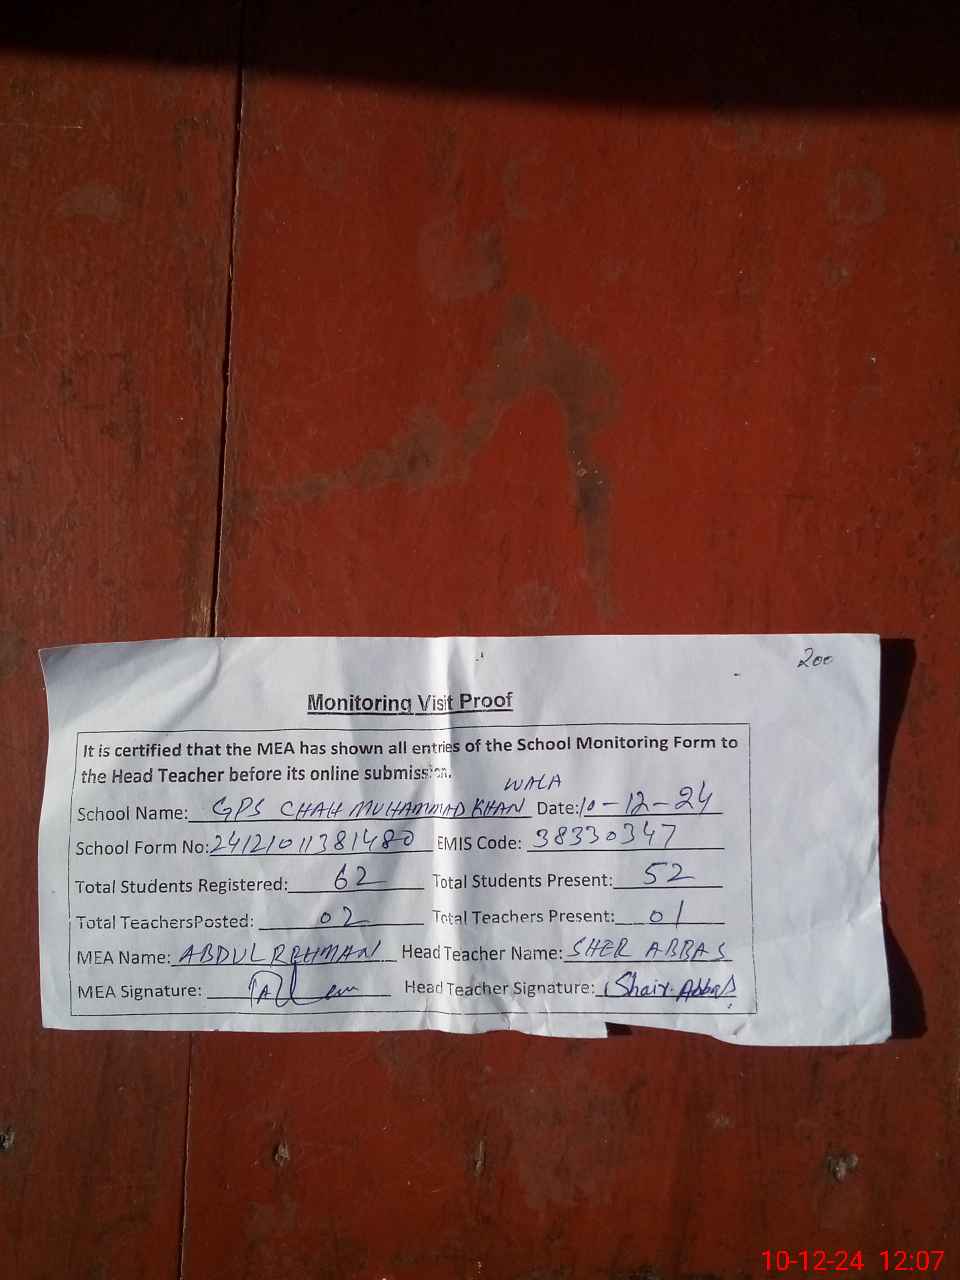 200
Monitoring Visit Proof
It is certified that the MEA has shown all entries of the School Monitoring Form to
the Head Teacher before its online submission.
WALA
School Name: GPS CHAH MUHAMMAD KHAN Date: 10-12-24
School Form No: 24121011381480 EMIS Code: 38330347
Total Students Registered: 62 Total Students Present: 52
Total TeachersPosted: 02 Total Teachers Present: 01
MEA Name: ABDUL REHMAN Head Teacher Name: SHER ABBAS
MEA Signature: Head Teacher Signature: Shair Abbas
10-12-24 12:07